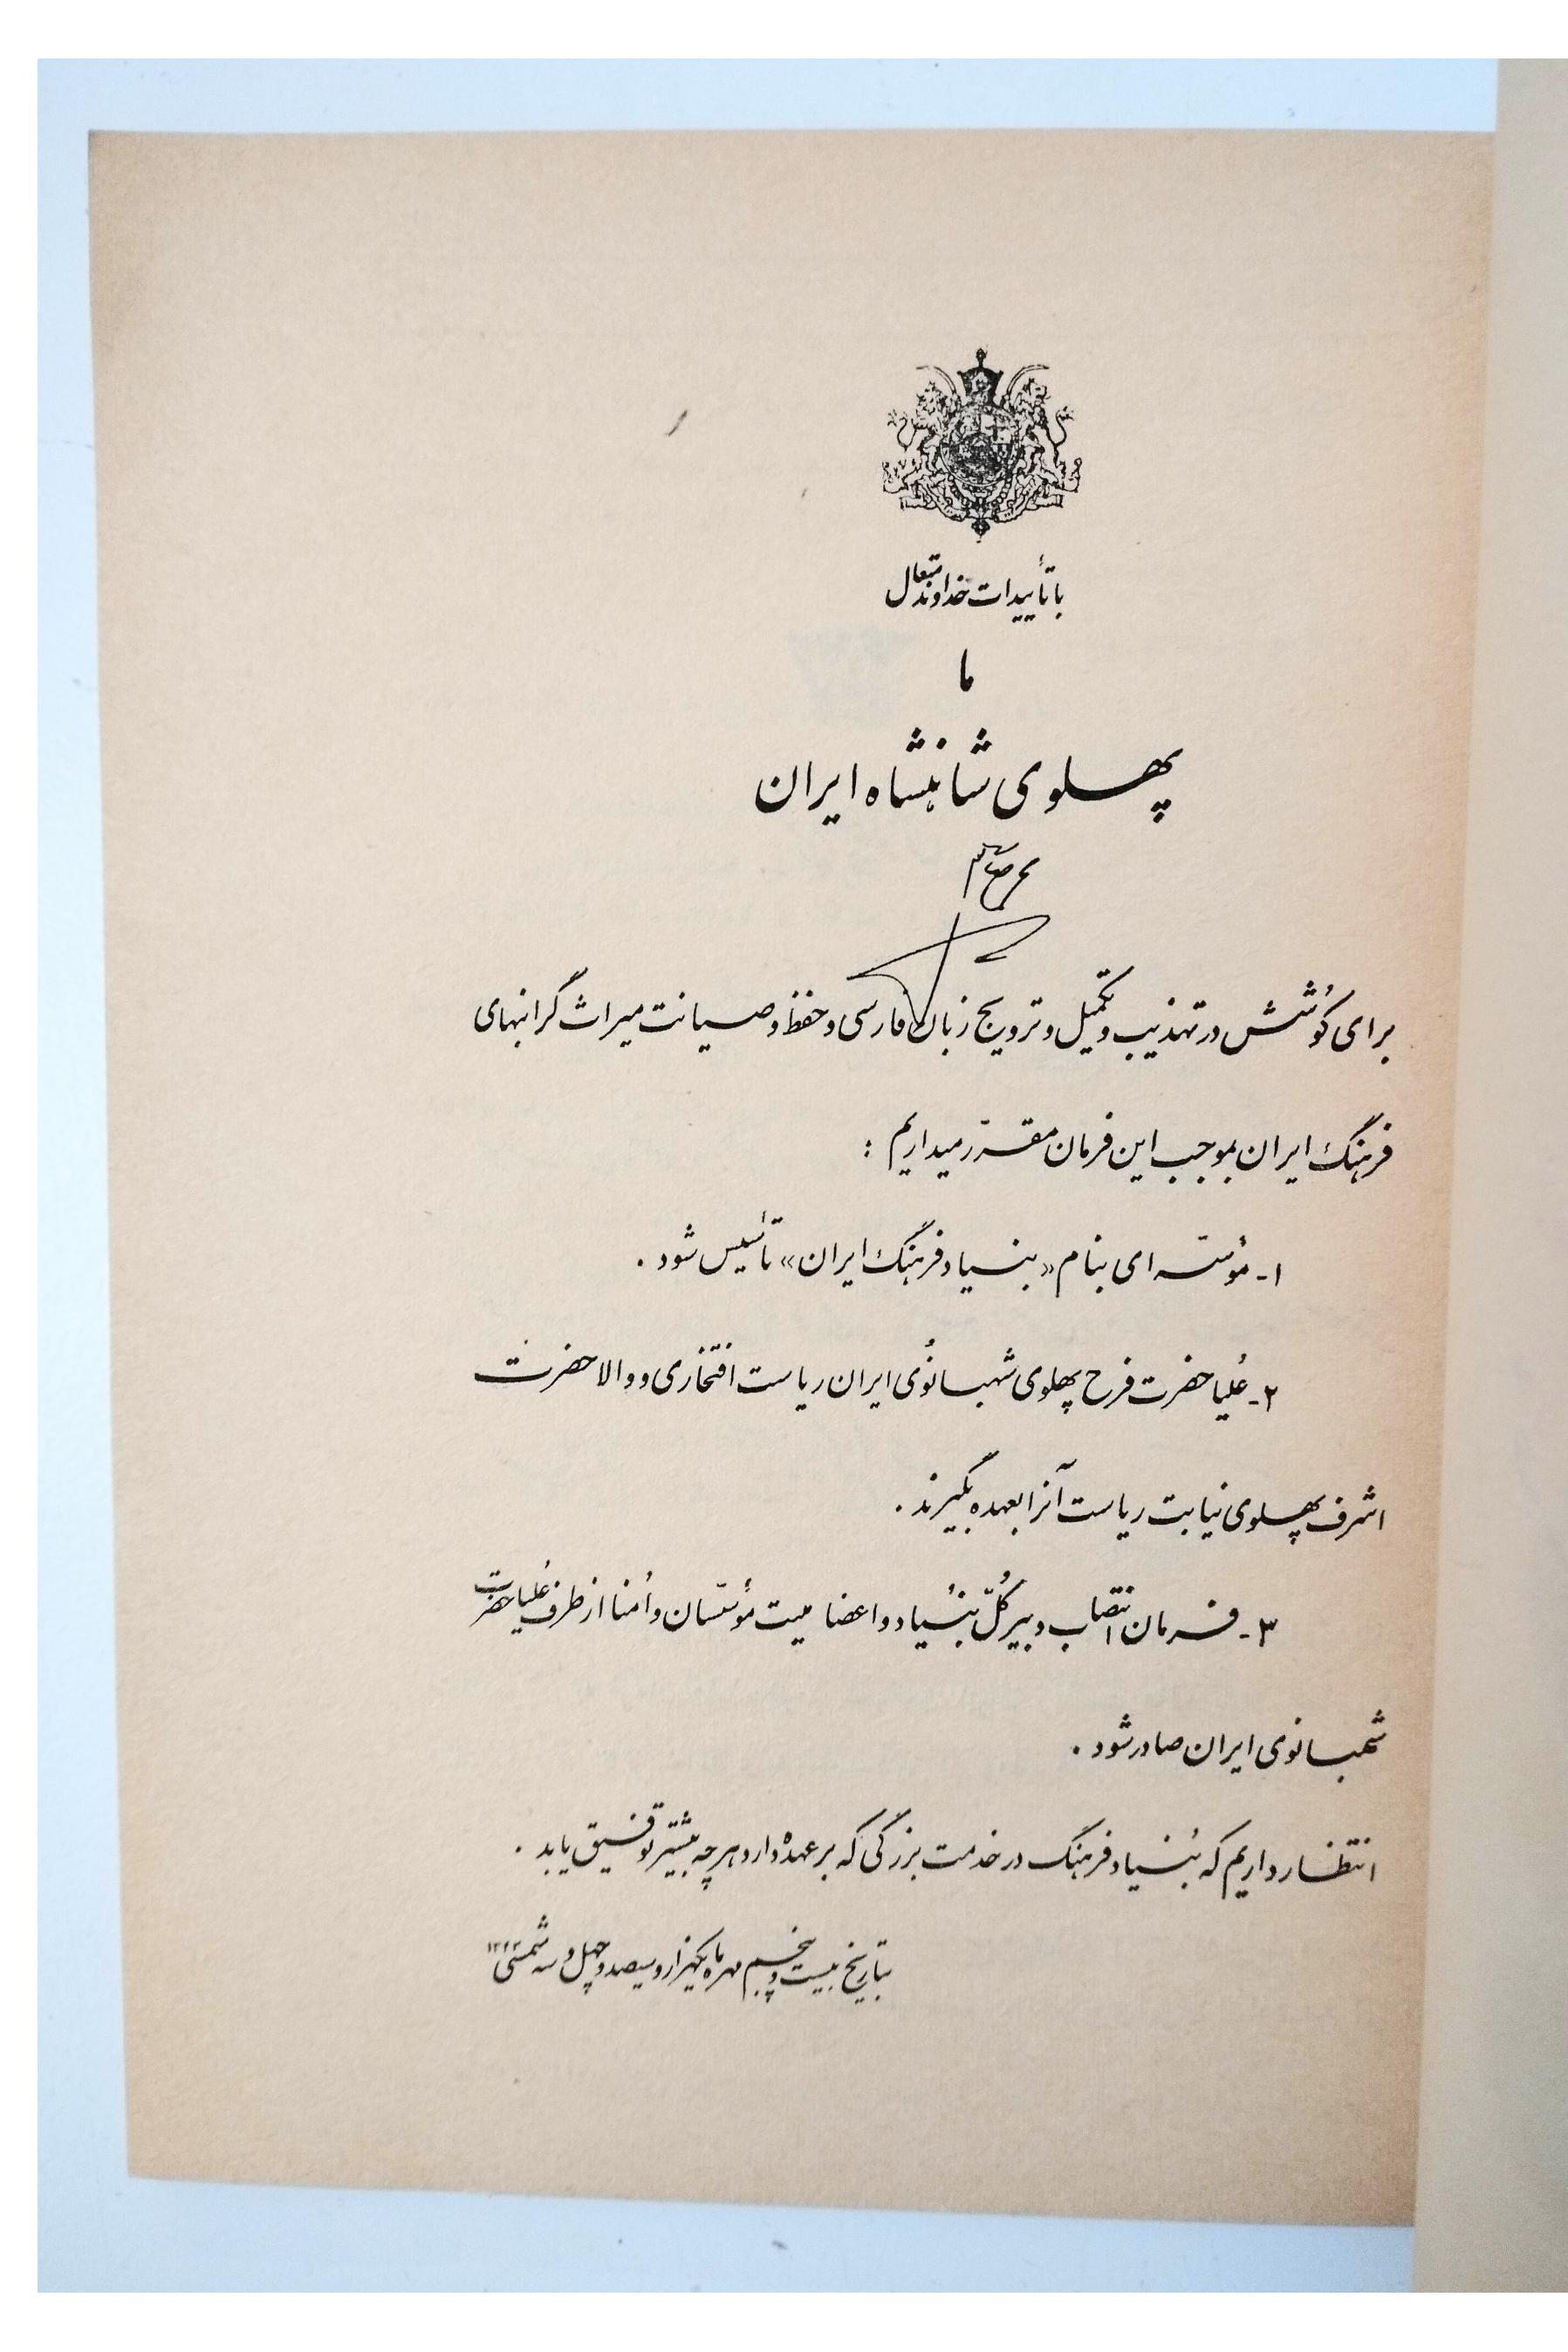 با تأییدات خداوند متعال
ما
پهلوی شاهنشاه ایران
برای کوُشش در تهذیب و تکمیل و ترویج زبان فارسی و حفظ و صیانت میراث گرانبهای
فرهنگ ایران بموجب این فرمان مقرّر میداریم :
۱- مؤسّسه ای بنام «بنیاد فرهنگ ایران» تأسیس شود .
۲- عُلیا حضرت فرح پهلوی شهبانُوی ایران ریاست افتخاری و والا حضرت
اشرف پهلوی نیابت ریاست آنرا بعهده بگیرند .
۳- فرمان انتصاب دبیر کُلّ بُنیاد و اعضا هیئت مؤسّسان و اُمنا از طرف عُلیا حضرت
شهبانوی ایران صادر شود .
انتظار داریم که بُنیاد فرهنگ در خدمت بزرگی که بر عهده دارد هر چه بیشتر توفیق یابد .
بتاریخ بیست و پنجم مهر ماه یکهزار و سیصد و چهل و سه شمسی "۱۳۴۳"